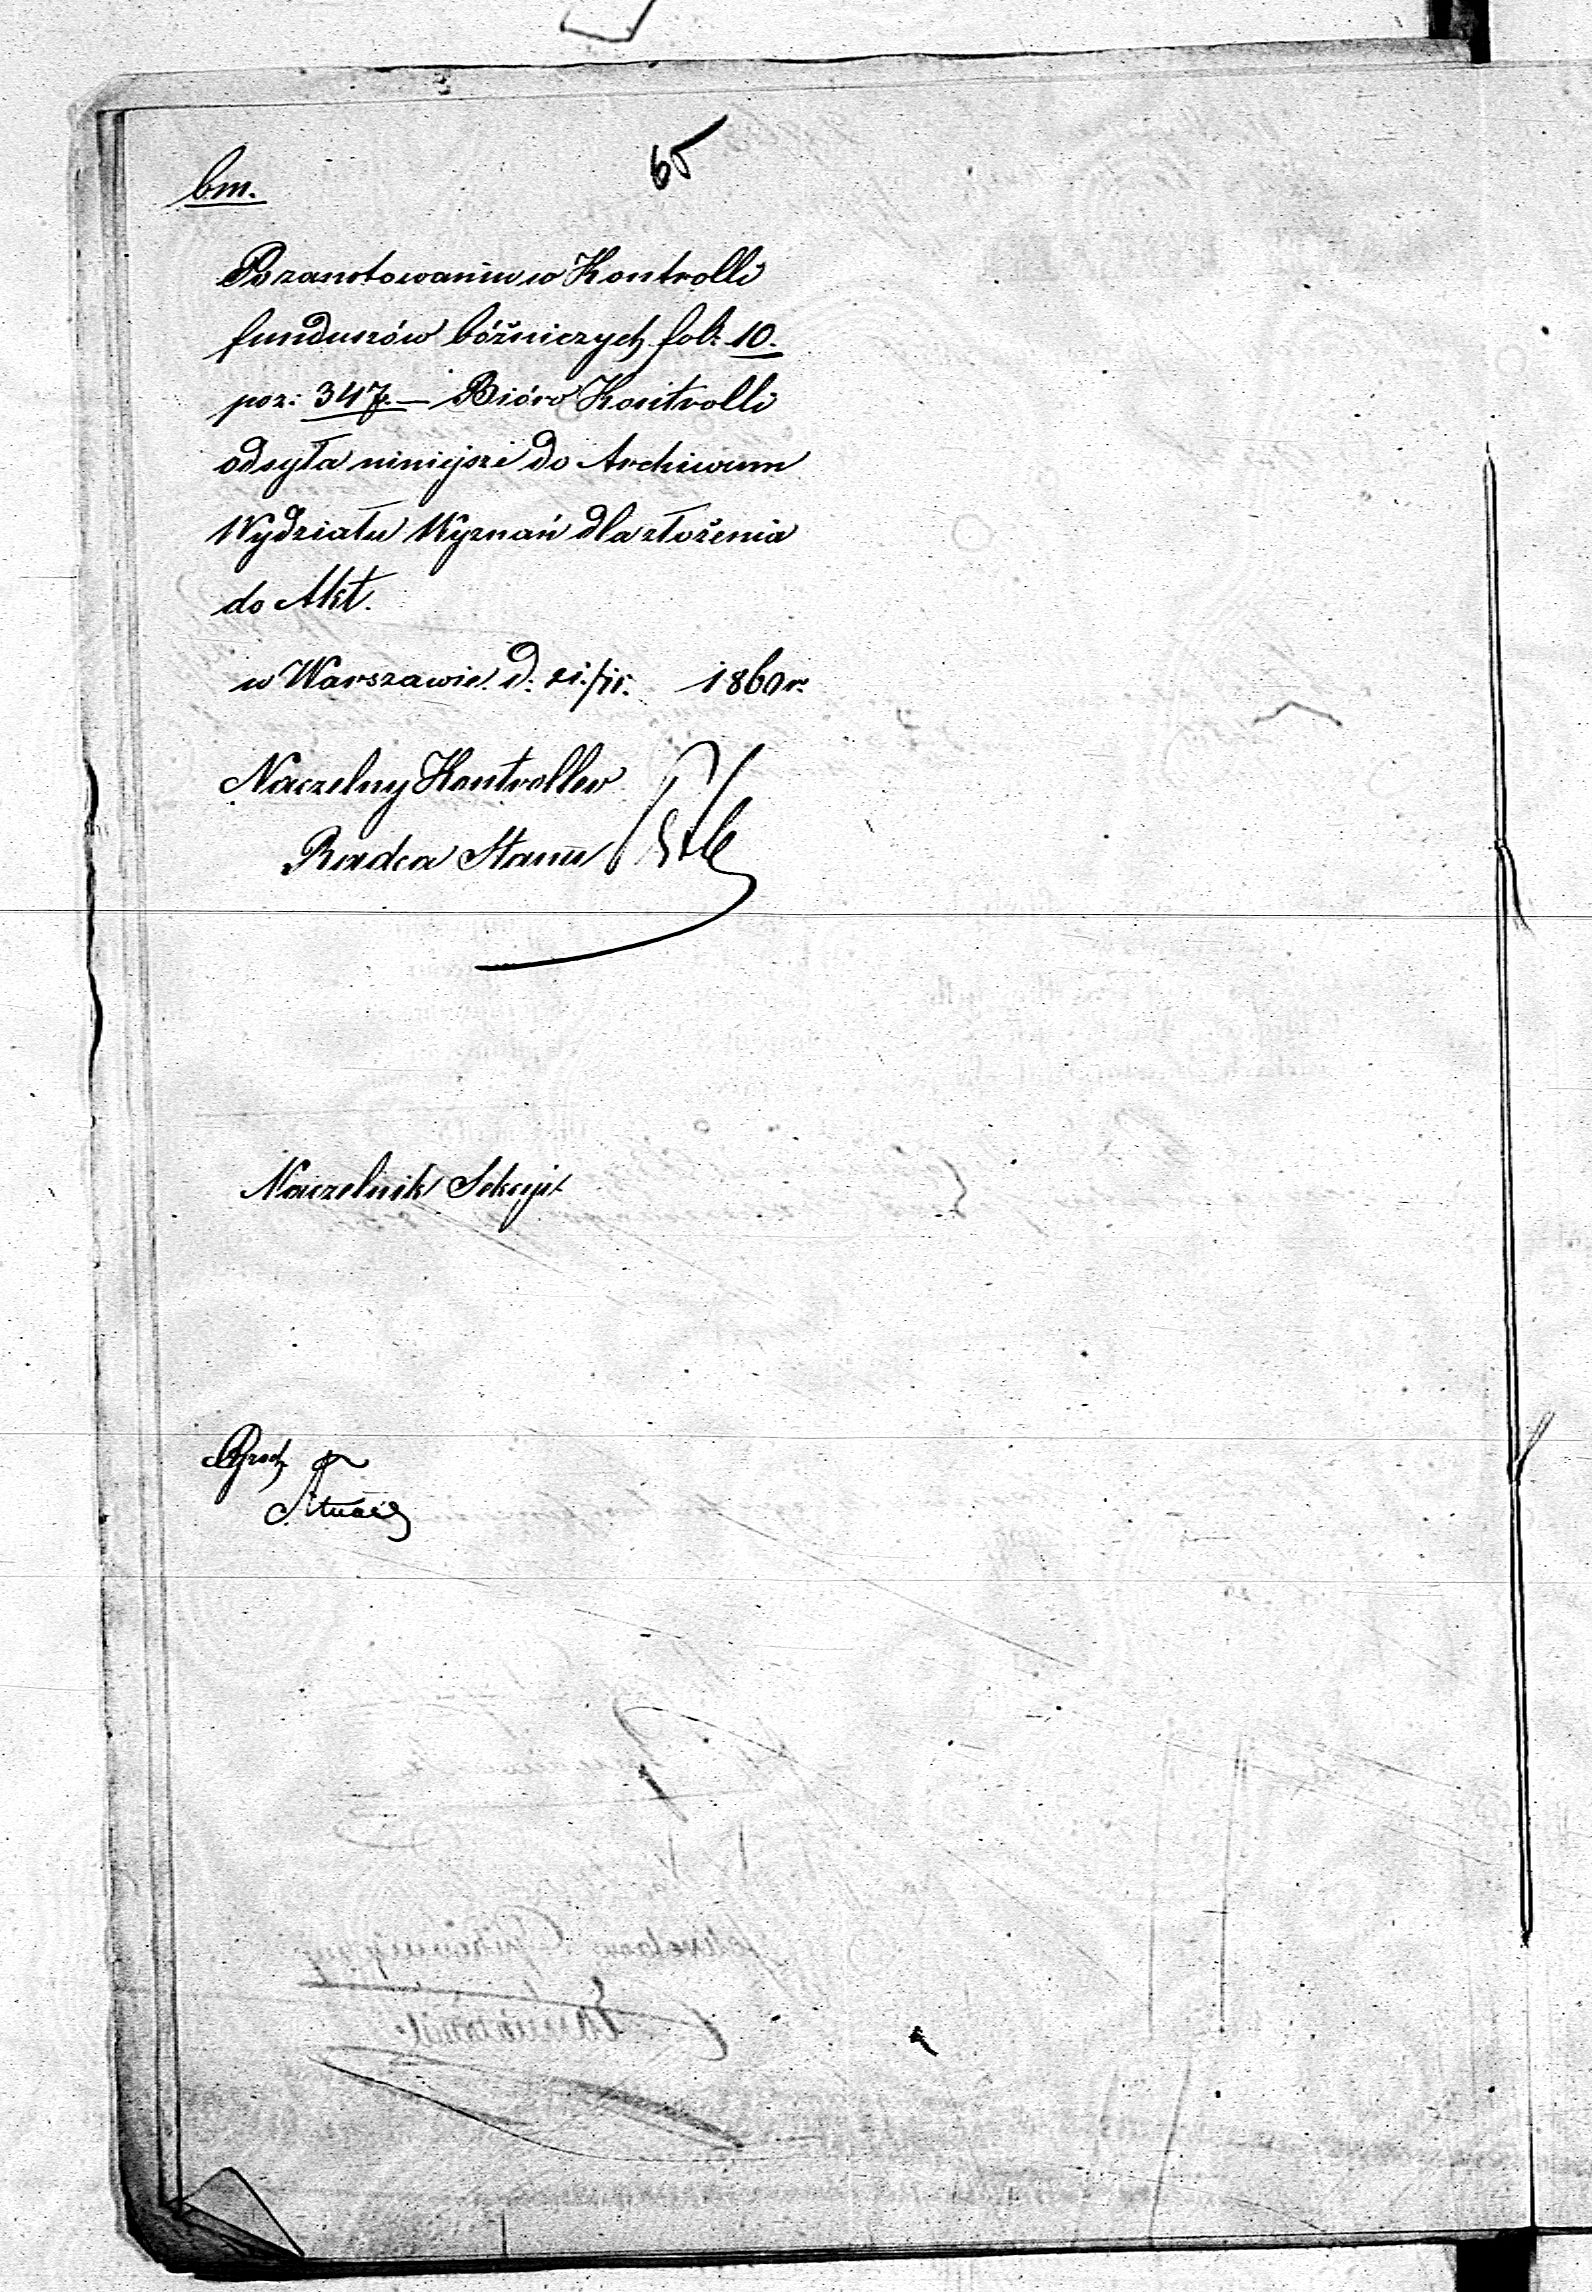 65
bm.
Po zanotowaniu w Kontrolli
funduszów bóżniczych fol: 10.
poz: 347. — Bióro Kontrolli
odsyła niniejsze do Archiwum
Wydziału Wyznań dla złożenia
do Akt.
w Warszawie d. 1860 r.
Naczelny Kontroller
Radca Stanu
Naczelnik Sekcyi